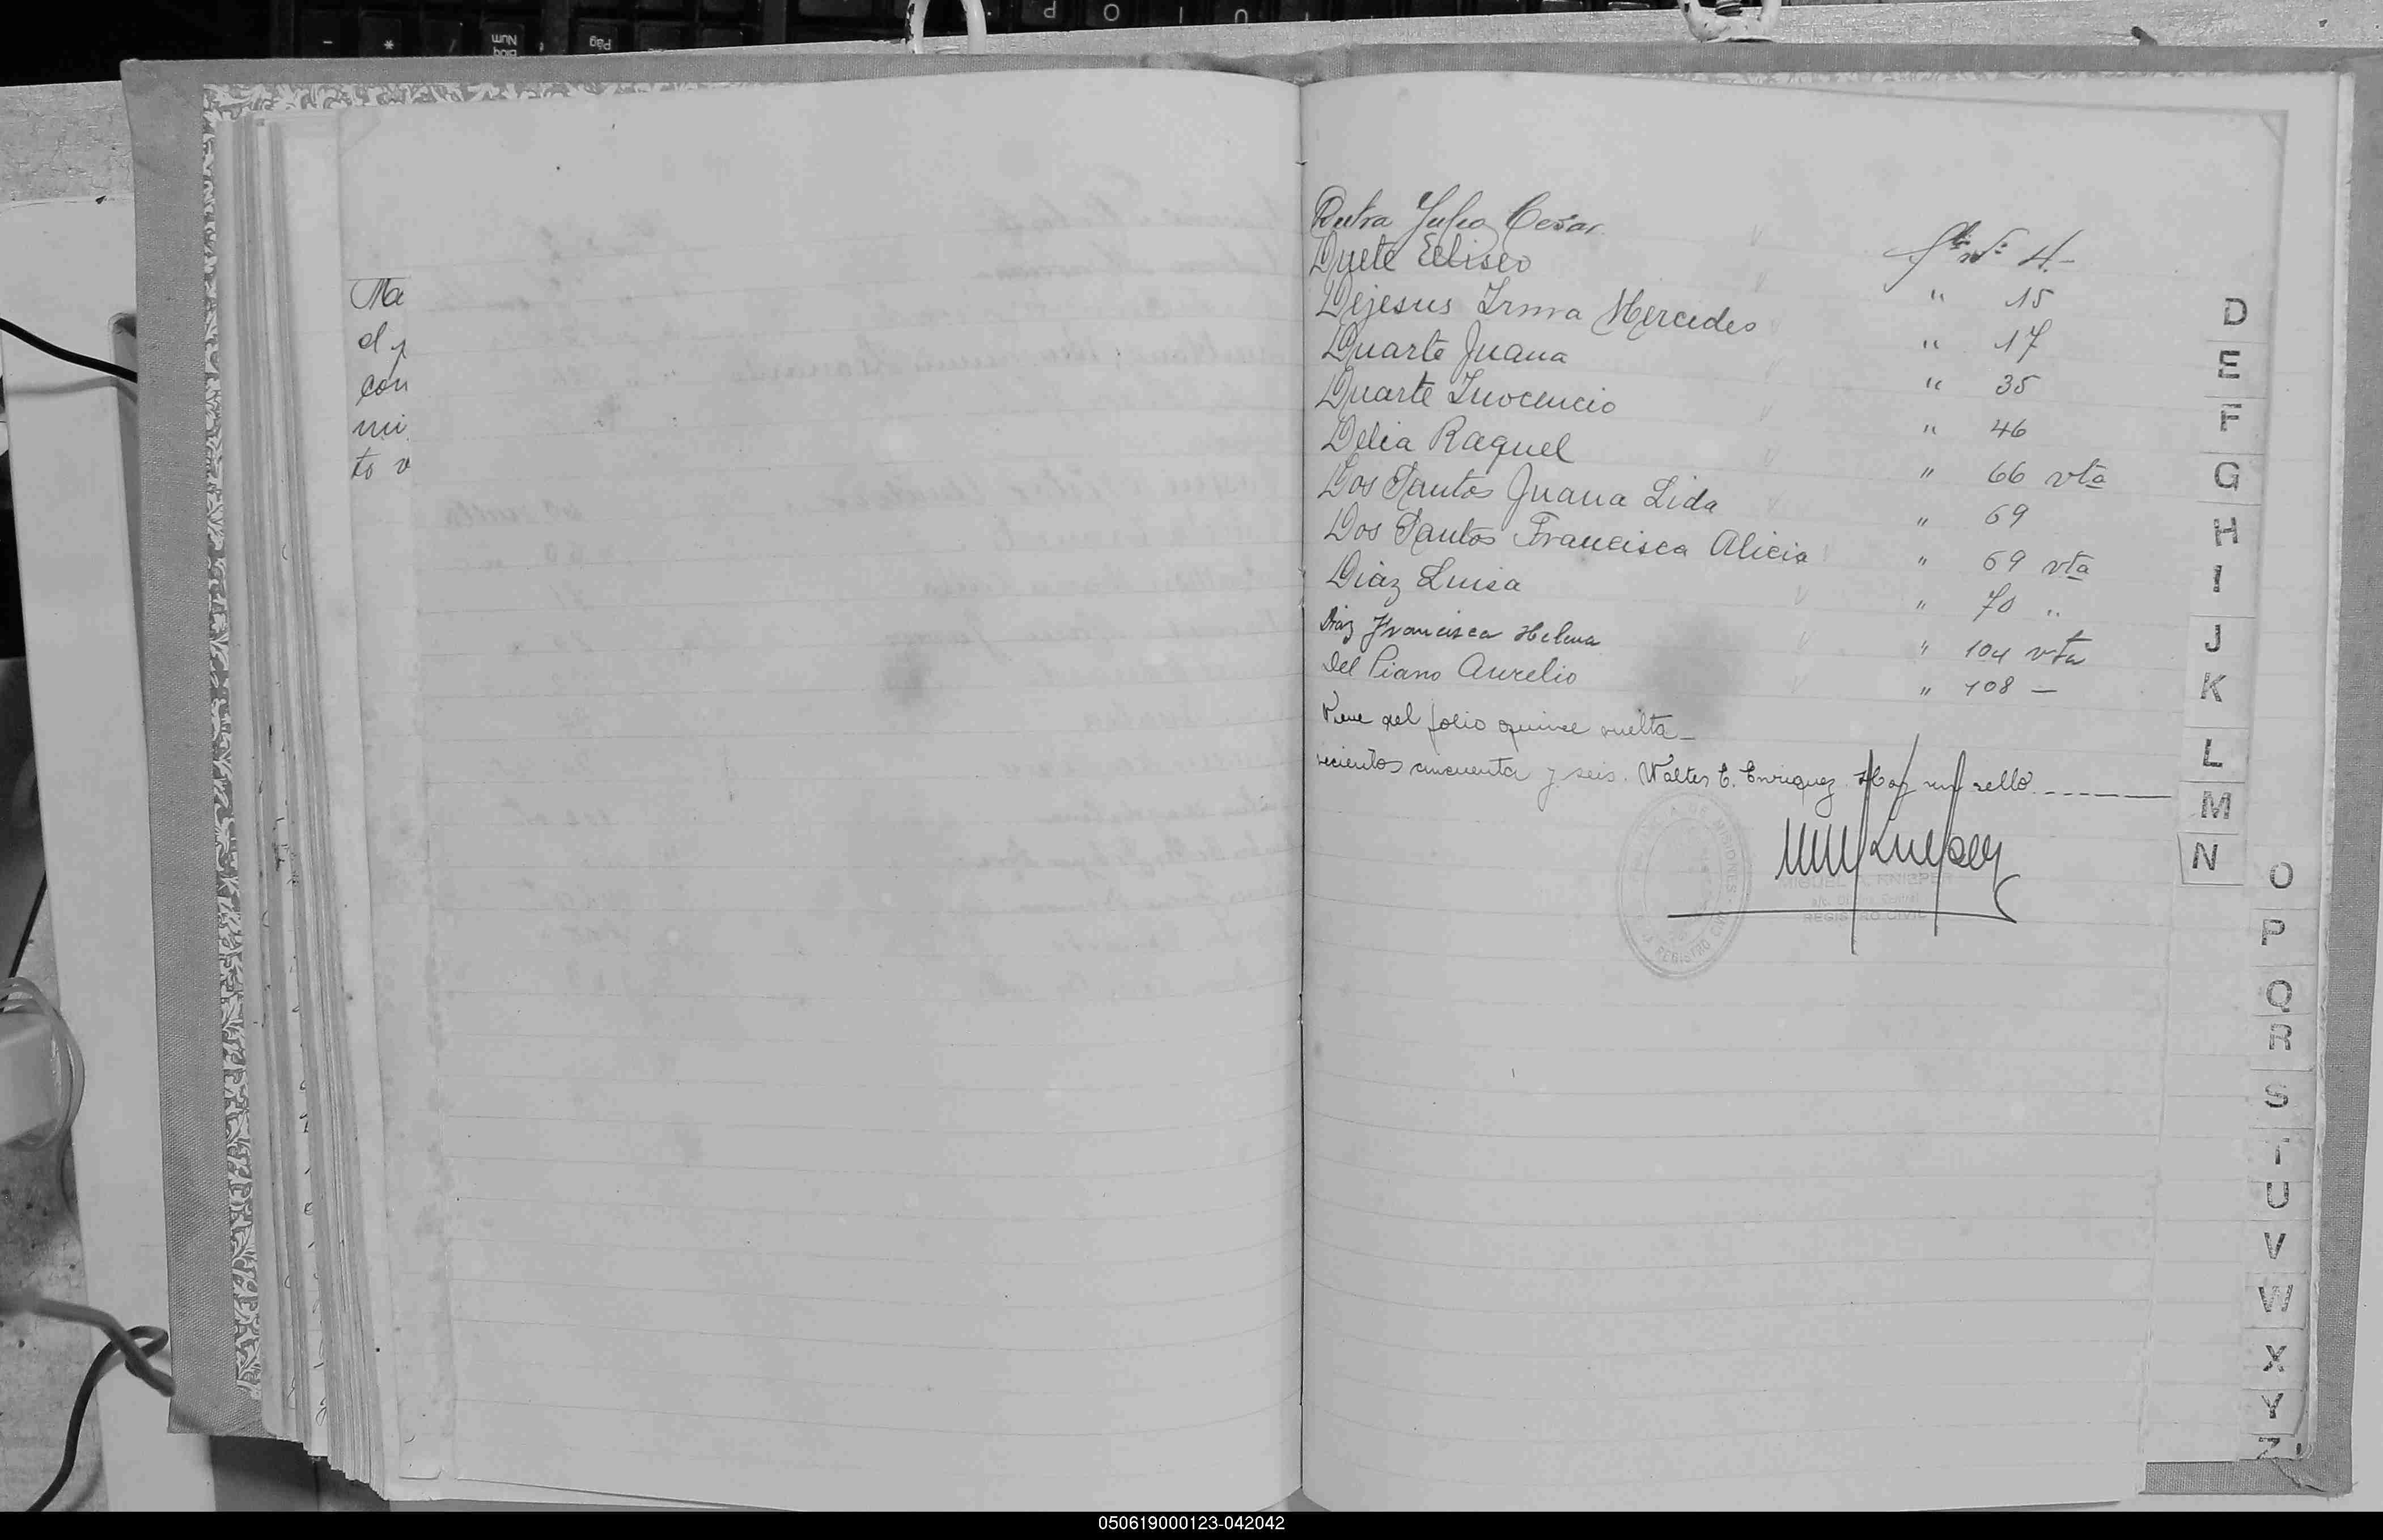 Ma
d
con
mi
to v
Dutra Julio Cesar fli Nº 4.-
Duete Eeliseo " 15
Dejesus Irma Mercedes " 17
Duarte Juana " 35
Duarte Inocencio " 46
Delia Raquel " 66 vta
Dos Santos Juana Lida " 69
Dos Santos Francisca Alicia " 69 vta
Diaz Luisa " 70 "
Diaz Francisca Helena " 104 vta
Del Piano Aurelio " 108 —
Viene del folio quince vuelta_
vecientos cincuenta y seis. Walter E. Enriquez. Hay un sello. ------
MISIONES
REGISTRO
MIGUEL A. KNIEPER
REGISTRO CIVIL
D
E
F
G
H
I
J
K
L
M
N
O
P
Q
R
S
T
U
V
W
X
Y
Z
050619000123-042042